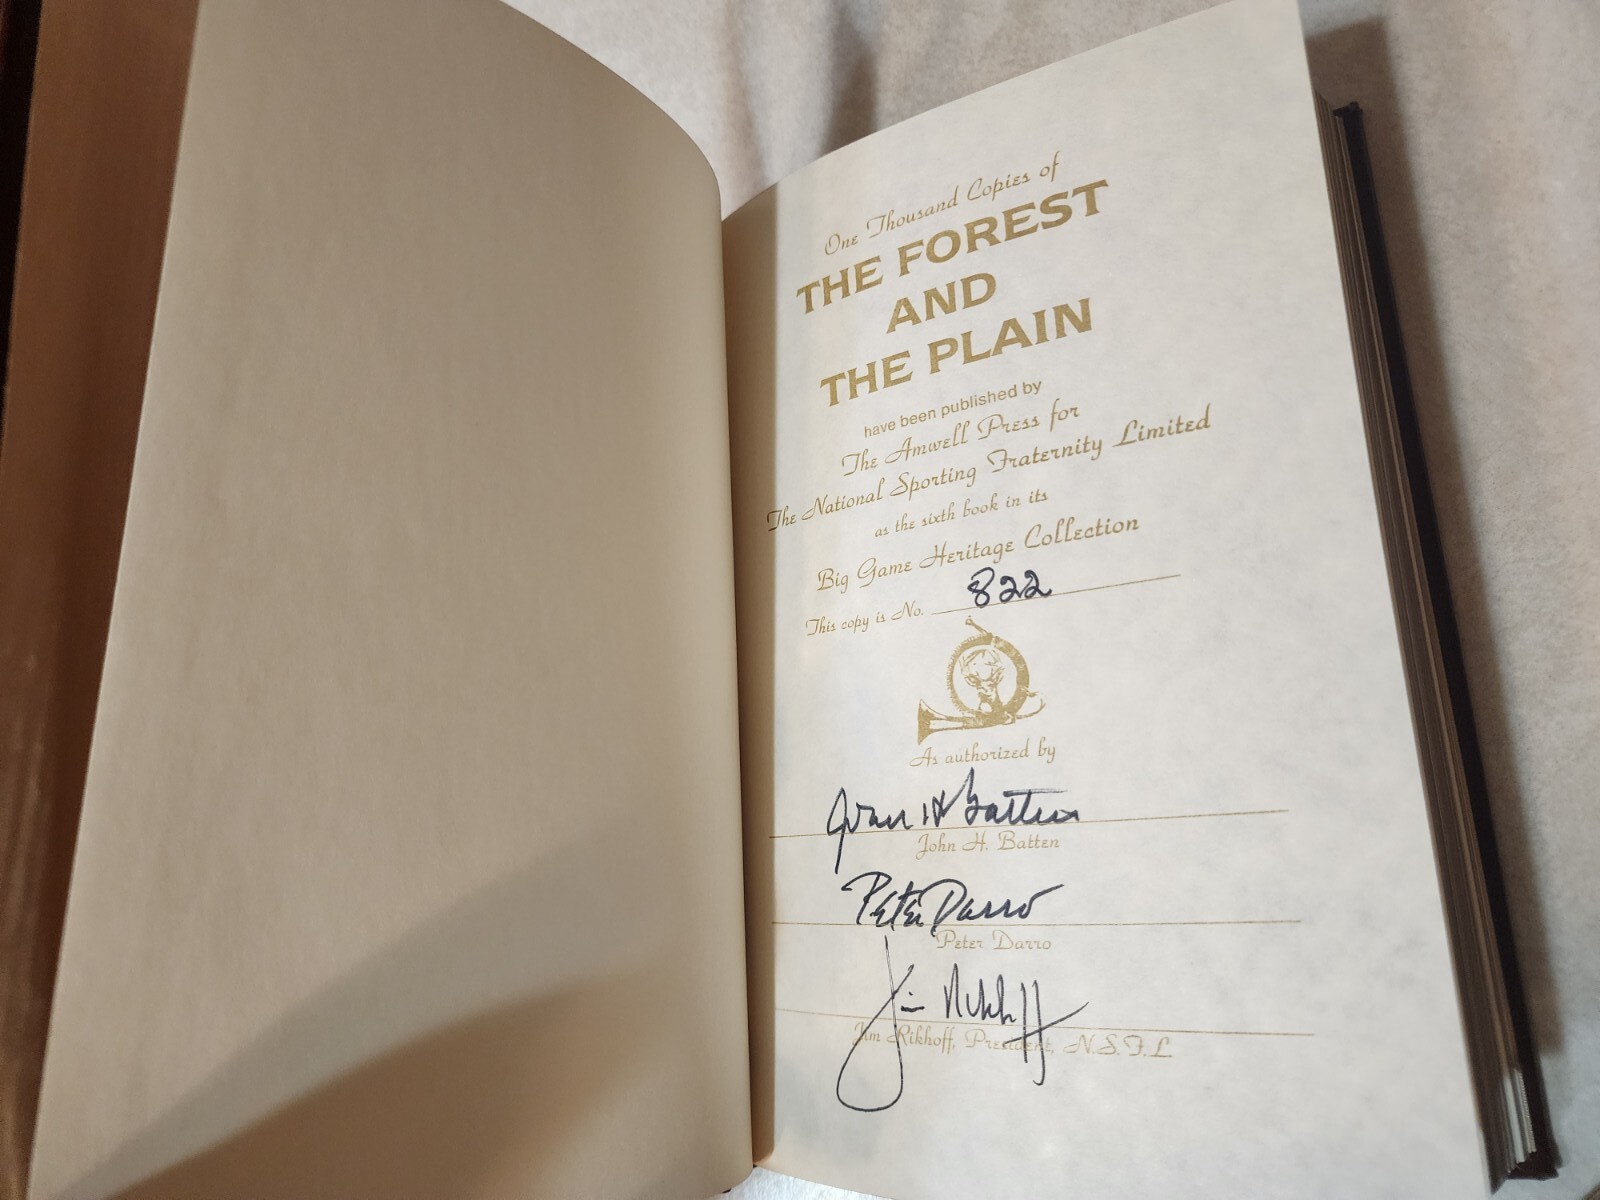 One Thousand Copies of
THE FOREST
AND
THE PLAIN
have been published by
The Amwell Press for
The National Sporting Fraternity Limited
as the sixth book in its
Big Game Heritage Collection
This copy is No. 822
As authorized by
John H Batten
John H. Batten
Peter Darro
Peter Darro
Jim Rikhoff
Jim Rikhoff, President, N.S.F.L